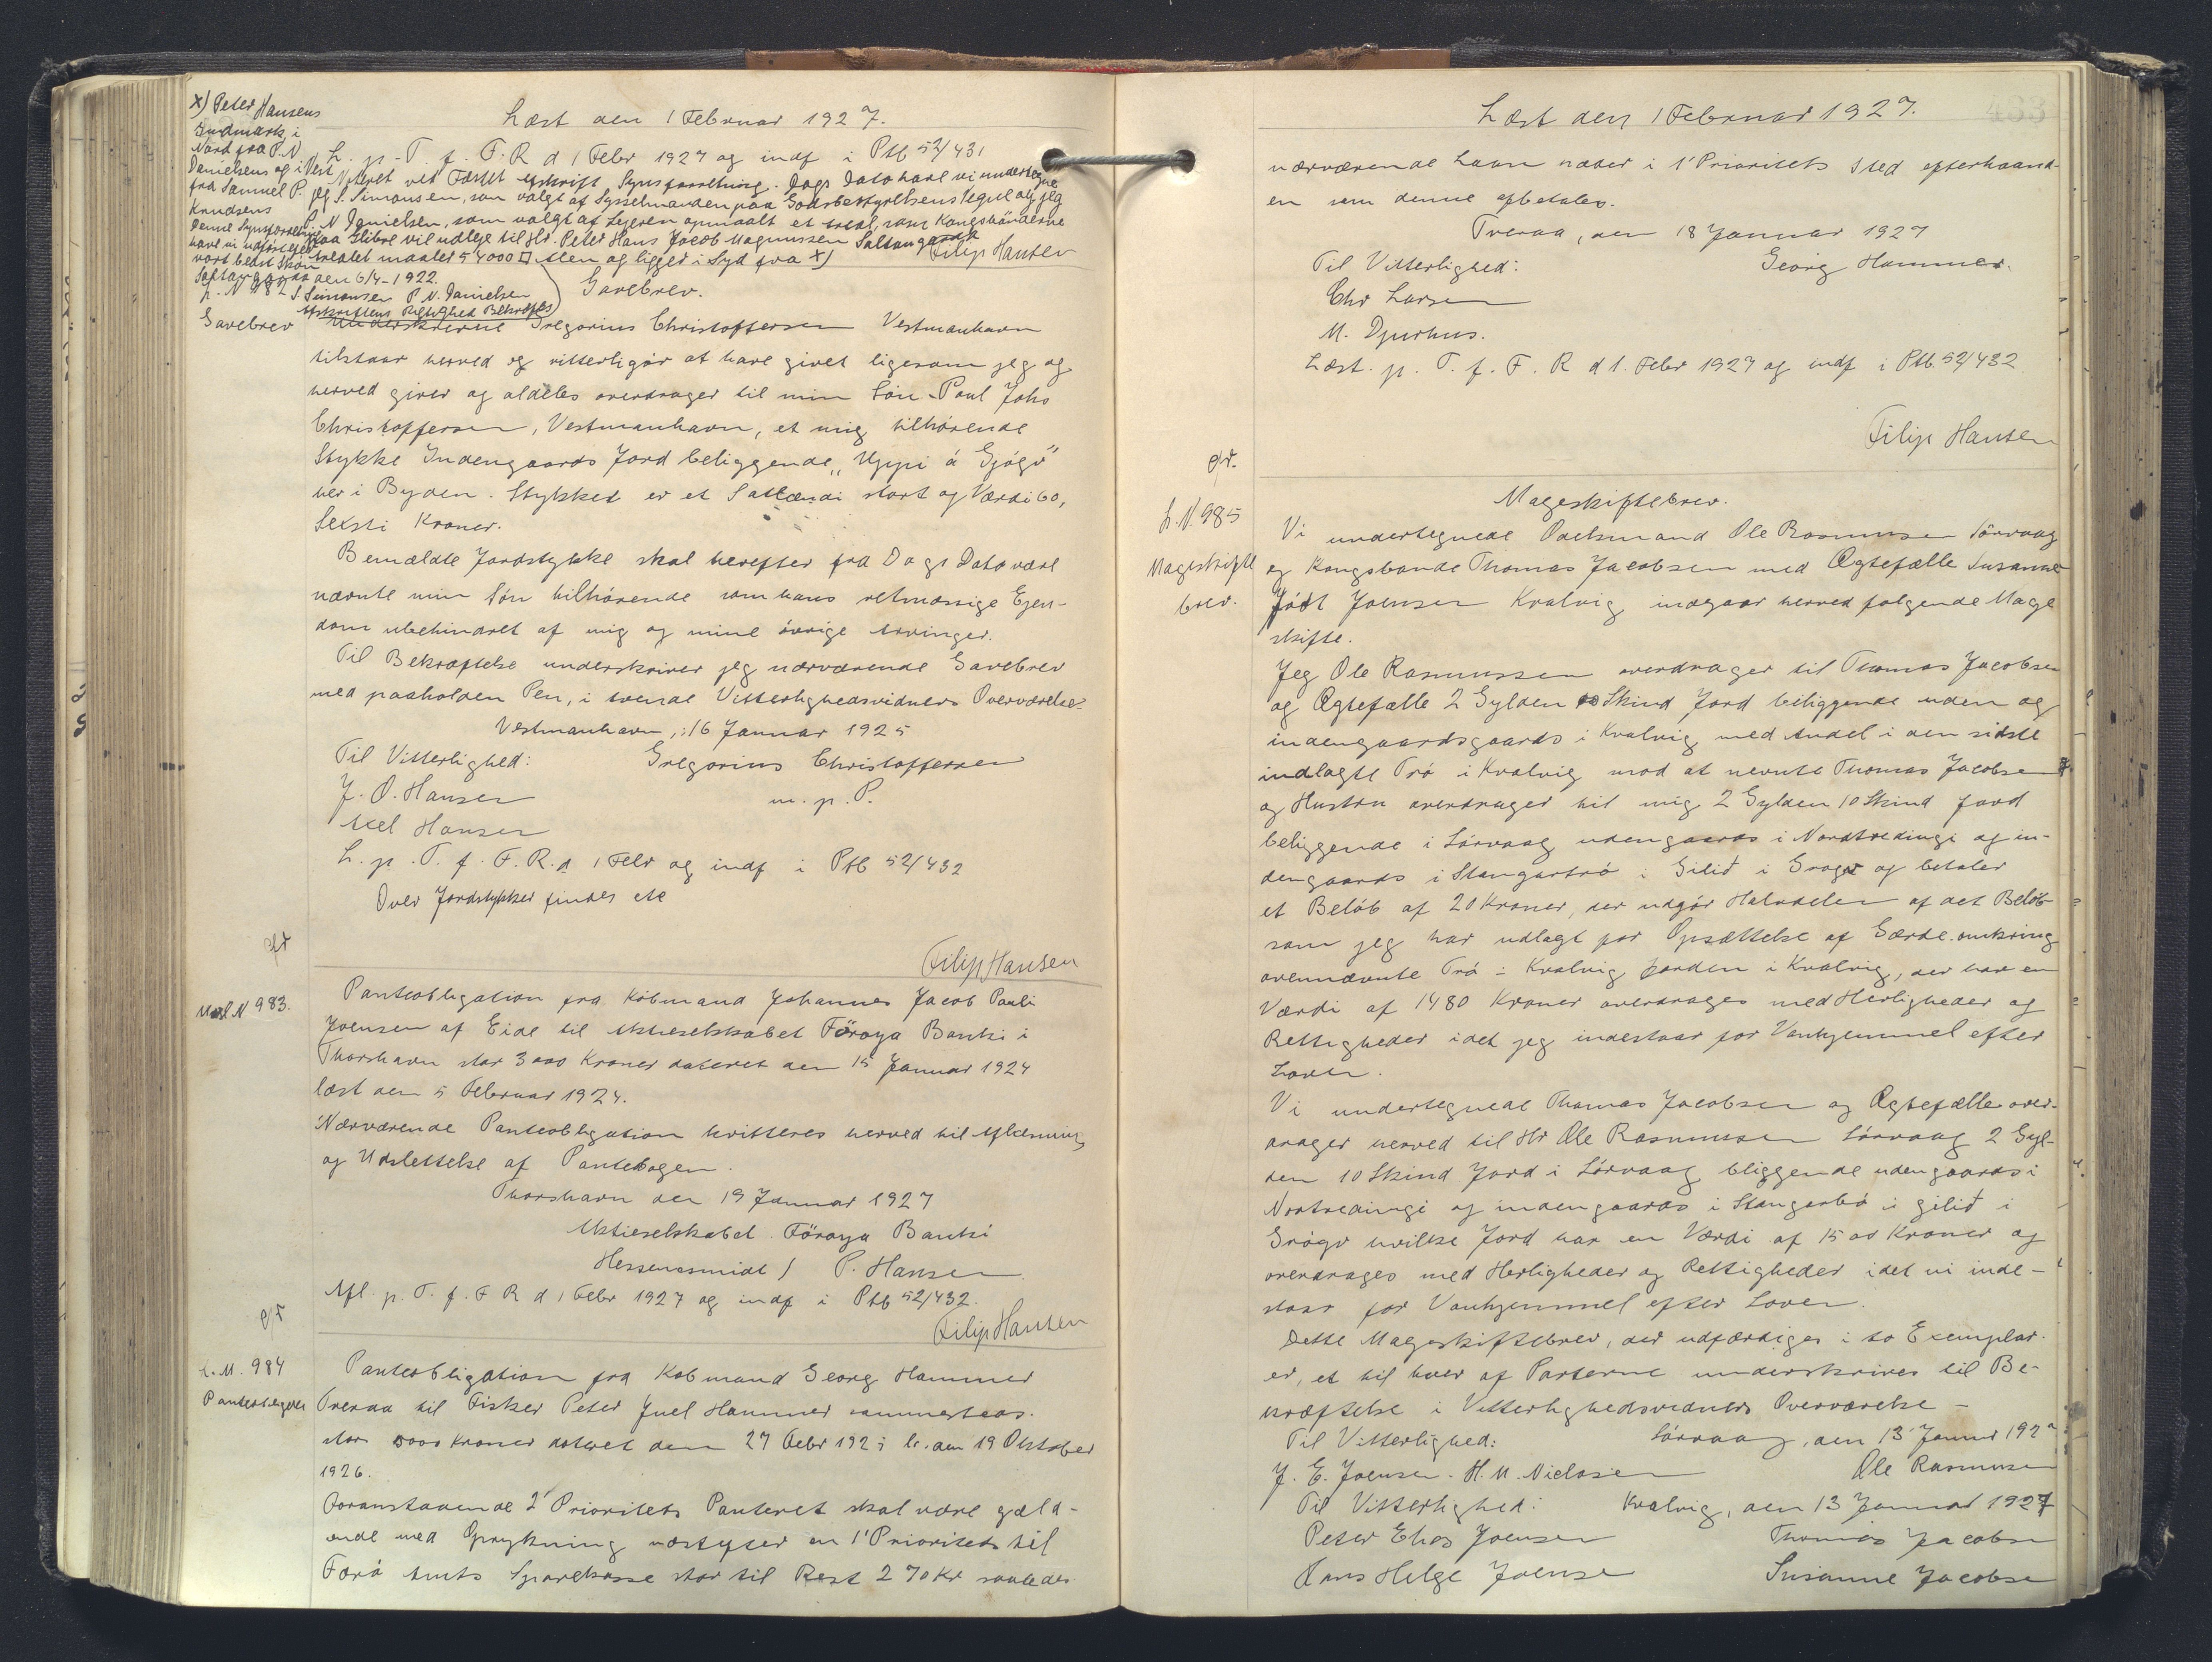 Læst den 1 Februar 1927.
L. p. T. f. F. R d 1 Febr 1927 og indf i Ptb 52/431
Noteret ved Fæstet Afskrift Synsforretning. Dags Dato have vi undertegne
jeg S. Simonsen, som valgt af Sysselmanden paa Godsbestyrelsens Vegne og jeg
P. N Danielsen, som valgt af Lejeren opmaalt et Areal, som Kongsbønderne
paa Glibre vil udleje til Hr. Peter Hans Jacob Magnussen Saltangaraa
Arealet maaler 54000 □ Alen og ligger i Syd fra x)
Filip Hansen
x) Peter Hansens
Indmark i
Nord fra P. N
Danielsens og i Vest
fra Samuel P.
Knudsens
Denne Synsforretning
have vi udført efter
vort bedst Skøn
Saltangaraa den 6/4-1922.
S. Simonsen P. N. Danielsen
Afskriftens Rigtighed Bekræftes
L. N 982
Gavebrev
Gavebrev.
Underskrevne Gregorius Christoffersen Vestmanhavn
tilstaar herved og vitterligør at have givet ligesom jeg og
herved giver og aldeles overdrager til min Søn Poul Johs
Christoffersen, Vestmanhavn, et mig tilhørende
Stykke Indengaards Jord beliggende „Uppi á Gjógv"
her i Byden. Stykket er et Sallændi stort og Værdi 60,
Sexti Kroner.
Bemældte Jordstykke skal herefter fra Dags Dato være
nævnte min Søn tilhørende som hans retmæssige Ejen-
dom ubehindret af mig og mine øvrige Arvinger.
Til Bekræftelse underskriver jeg nærværende Gavebrev
med paaholden Pen, i tvende Vitterlighedsvidners Overværelse.
Vestmanhavn, 16 Januar 1925
Til Vitterlighed: Gregorius Christoffersen
J. O. Hansen m. p. P.
Axel Hansen
L. p. T. f. F. R. d 1 Febr og indf i Ptb 52/432
Over Jordstykket findes etc
Filip Hansen
N 983.
Panteobligation fra Købmand Johannes Jacob Pauli
Joensen af Eide til Aktieselskabet Föroya Banki i
Thorshavn stor 3000 Kroner dateret den 15 Januar 1924
læst den 5 Februar 1924.
Nærværende Panteobligation kvitteres herved til Aflæsning
og Udslettelse af Pantebogen.
Thorshavn den 19 Januar 1927
Aktieselskabet Föroya Banki
Hessensmidt / P. Hansen
Afl. p. T. f. F R d 1 Febr 1927 og indf i Ptb 52/432.
Filip Hansen
L. N. 984
Panteobligation
Panteobligation fra Købmand Georg Hammer
Tveraa til Fisker Peter Juel Hammer sammesteds.
stor 5000 Kroner dateret den 27 Febr 192 l. den 19 Oktober
1926.
Foranstaaende 2' Prioritets Panteret skal være gæld-
ende med Oprykning næstefter en 1' Prioritets til
Færø Amts Sparekasse stor til Rest 270 Kr saaledes
Læst den 1 Februar 1927.
nærværende Laan træder i 1' Prioritets Sted efterhaand-
en som denne afbetales.
Tveraa, den 18 Januar 1927
Til Vitterlighed: Georg Hammer.
Chr Larsen
M. Djurhus.
Læst. p. T. f. F. R d 1. Febr 1927 og indf i Ptb. 52/432
Filip Hansen
L. N. 985
Mageskifte
brev.
Mageskiftebrev.
Vi undertegnede Ole Rasmussen Sørvaag
og Kongsbonde Thomas Jacobsen med Ægtefælle Susanne
født Joensen Kvalvig indgaar herved følgende Mage
skifte.
Jeg Ole Rasmussen overdrager til Thomas Jacobsen
og Ægtefælle 2 Gylden 10 Skind Jord beliggende uden og
indengaardsgaards i Kvalvig med Andel i den sidste
indlagte Trø i Kvalvig mod at nevnte Thomas Jacobsen
og Hustru overdrager til mig 2 Gylden 10 Skind Jord
beliggende i Sørvaag udengaards i Nordtredingi og in-
dengaards i Stangartrø i Gilið i Grøgv og betaler
et Beløb af 20 Kroner, der udgør Halvdelen af det Beløb
som jeg har udlagt for Opsættelse af Gærde omkring
ovennævnte Trø i Kvalvig Jorden i Kvalvig, der har en
Værdi af 1480 Kroner overdrages med Herligheder og
Rettigheder idet jeg indestaar for Vanhjemmel efter
Loven.
Vi undertegnede Thomas Jacobsen og Ægtefælle over-
drager herved til Hr Ole Rasmussen Sørvaag 2 Gyl-
den 10 Skind Jord i Sørvaag bliggende udengaards i
Nortredingi og indengaards i Stangarbø i gilið i
Grógv hvilke Jord har en Værdi af 1500 Kroner og
overdrages med Herligheder og Rettigheder idet vi inde-
staar for Vanhjemmel efter Loven.
Dette Mageskiftebrev, der udfærdiges i to Exemplar-
er, et til hver af Parterne underskrives til Be-
kræftelse i Vitterlighedsvidners Overværelse –
Til Vitterlighed: Sørvaag, den 13 Januar 1927
J. E. Joensen. H. M. Niclasen Ole Rasmussen
Til Vitterlighed: Kvalvig, den 13 Januar 1927
Peter Elias Joensen Thomas Jacobsen
Hans Helge Joensen Susanne Jacobsen